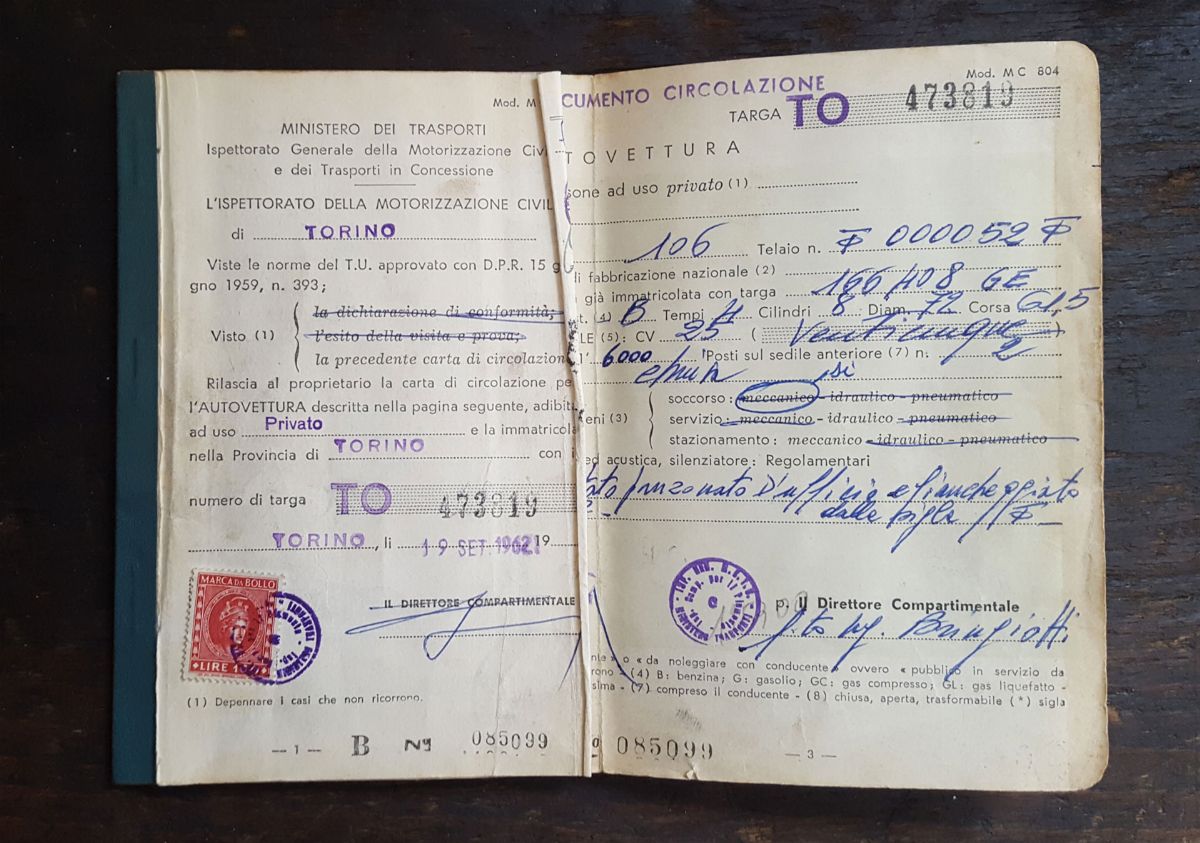 Mod. M
MINISTERO DEI TRASPORTI
Ispettorato Generale della Motorizzazione Civi
e dei Trasporti in Concessione
L'ISPETTORATO DELLA MOTORIZZAZIONE CIVIL
di TORINO
Viste le norme del T.U. approvato con D.P.R. 15 g
gno 1959, n. 393;
la dichiarazione di conformità;
Visto (1) l'esito della visita e prova;
la precedente carta di circolazion
Rilascia al proprietario la carta di circolazione pe
l'AUTOVETTURA descritta nella pagina seguente, adibit
ad uso Privato e la immatricola
nella Provincia di TORINO con i
numero di targa TO 473819
TORINO, li 19 SET. 1962 19
IL DIRETTORE COMPARTIMENTALE
MARCA DA BOLLO
LIRE 1
(1) Depennare i casi che non ricorrono.
— 1 — B Nº 085099
Mod. MC 804
CUMENTO CIRCOLAZIONE
TARGA TO 473819
TOVETTURA
sone ad uso privato (1)
106 Telaio n. F 000052 F
di fabbricazione nazionale (2)
già immatricolata con targa 166408 GE
t. (4) B Tempi 4 Cilindri 8 Diam. 72 Corsa 61,5
LE (5): CV 25 (Venticinque)
l' 6000 Posti sul sedile anteriore (7) n. 2
si
soccorso: meccanico - idraulico - pneumatico
eni (3) servizio: meccanico - idraulico - pneumatico
stazionamento: meccanico - idraulico - pneumatico
ed acustica, silenziatore: Regolamentari
punzonato D'ufficio e fiancheggiato
dalle sigle F
p. Il Direttore Compartimentale
f.to ing.
nte» o «da noleggiare con conducente» ovvero «pubblico in servizio da
rono - (4) B: benzina; G: gasolio; GC: gas compresso; GL: gas liquefatto -
sima - (7) compreso il conducente - (8) chiusa, aperta, trasformabile (*) sigla
085099 — 3 —